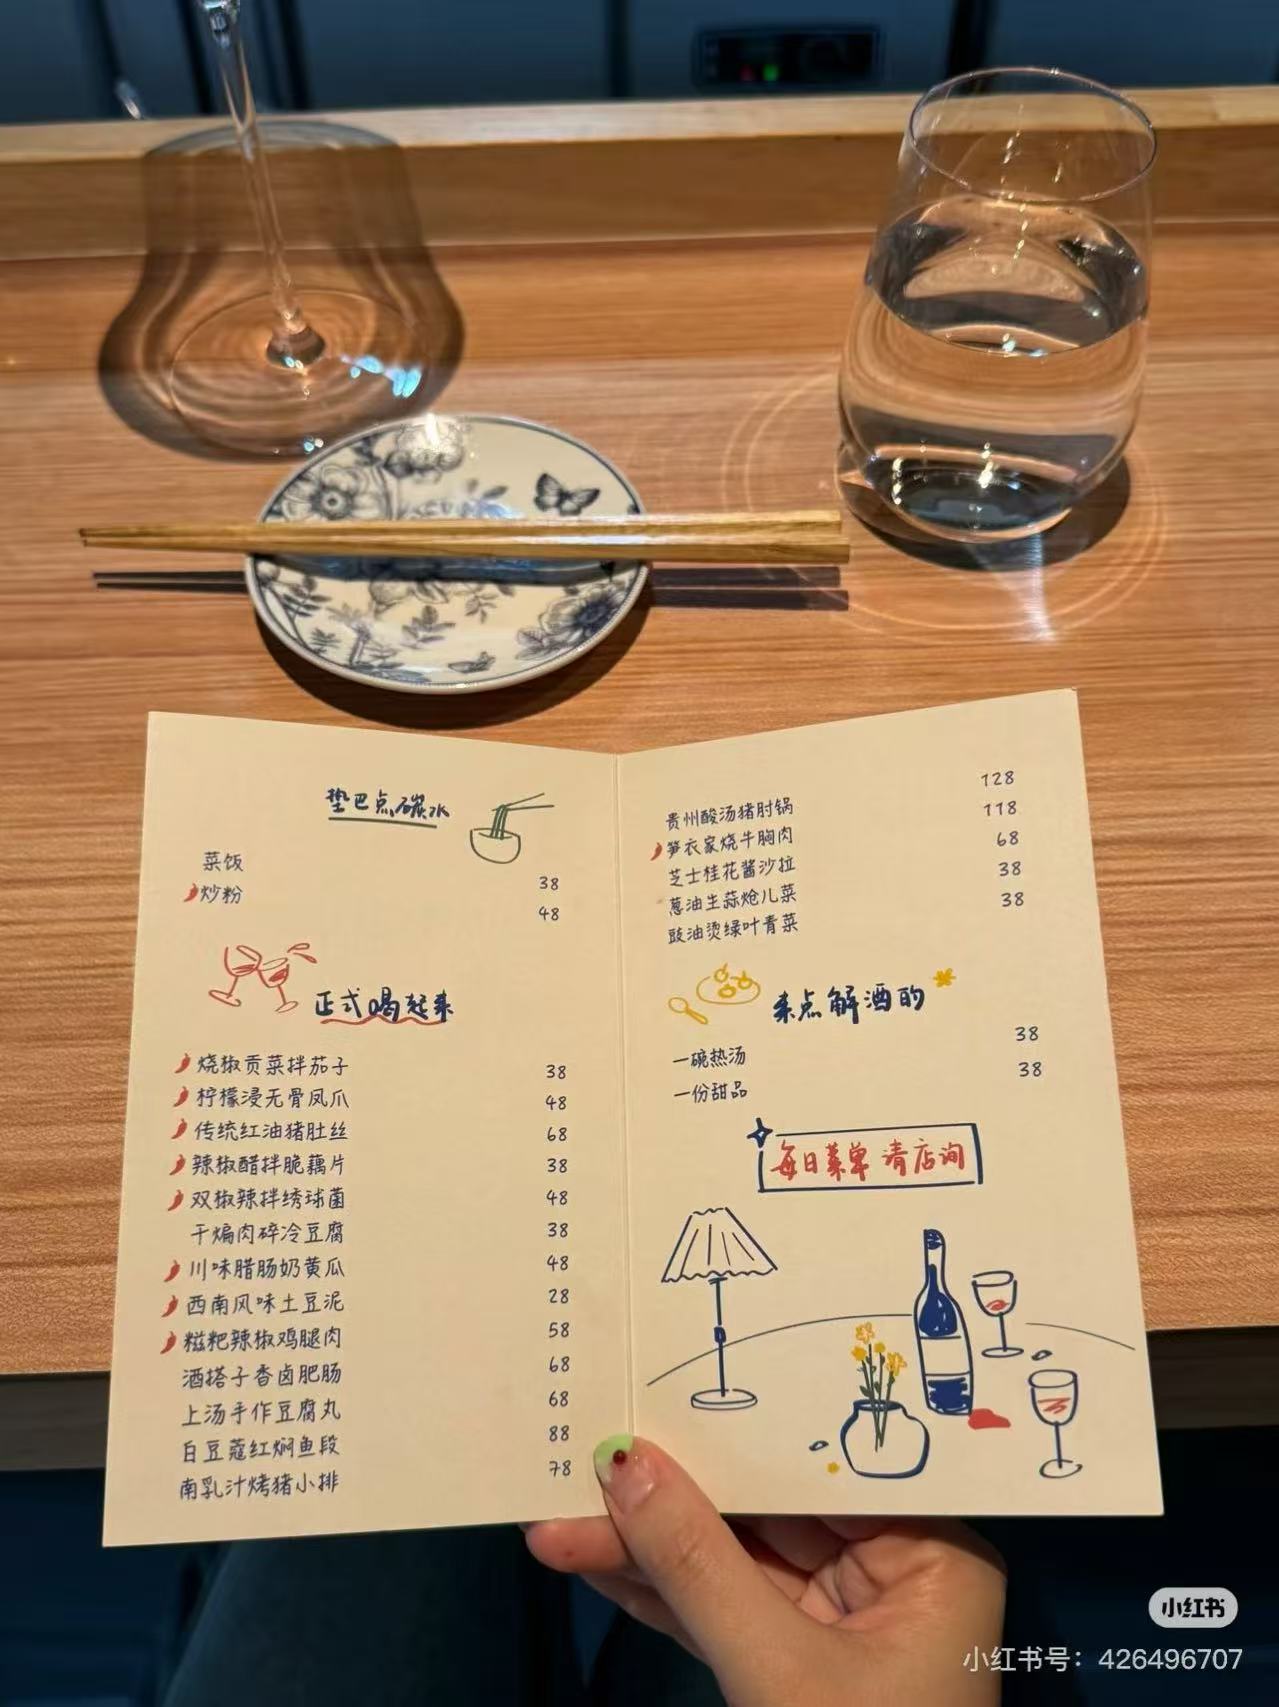 垫巴点碳水
菜饭 38
炒粉 48
正式喝起来
烧椒贡菜拌茄子 38
柠檬浸无骨凤爪 48
传统红油猪肚丝 68
辣椒醋拌脆藕片 38
双椒辣拌绣球菌 48
干煸肉碎冷豆腐 38
川味腊肠奶黄瓜 48
西南风味土豆泥 28
糍粑辣椒鸡腿肉 58
酒搭子香卤肥肠 68
上汤手作豆腐丸 68
白豆蔻红焖鱼段 88
南乳汁烤猪小排 78
贵州酸汤猪肘锅 128
笋衣家烧牛胸肉 118
芝士桂花酱沙拉 68
葱油生蒜炝儿菜 38
豉油烫绿叶青菜 38
来点解酒的
一碗热汤 38
一份甜品 38
每日菜单 请店询
小红书
小红书号：426496707